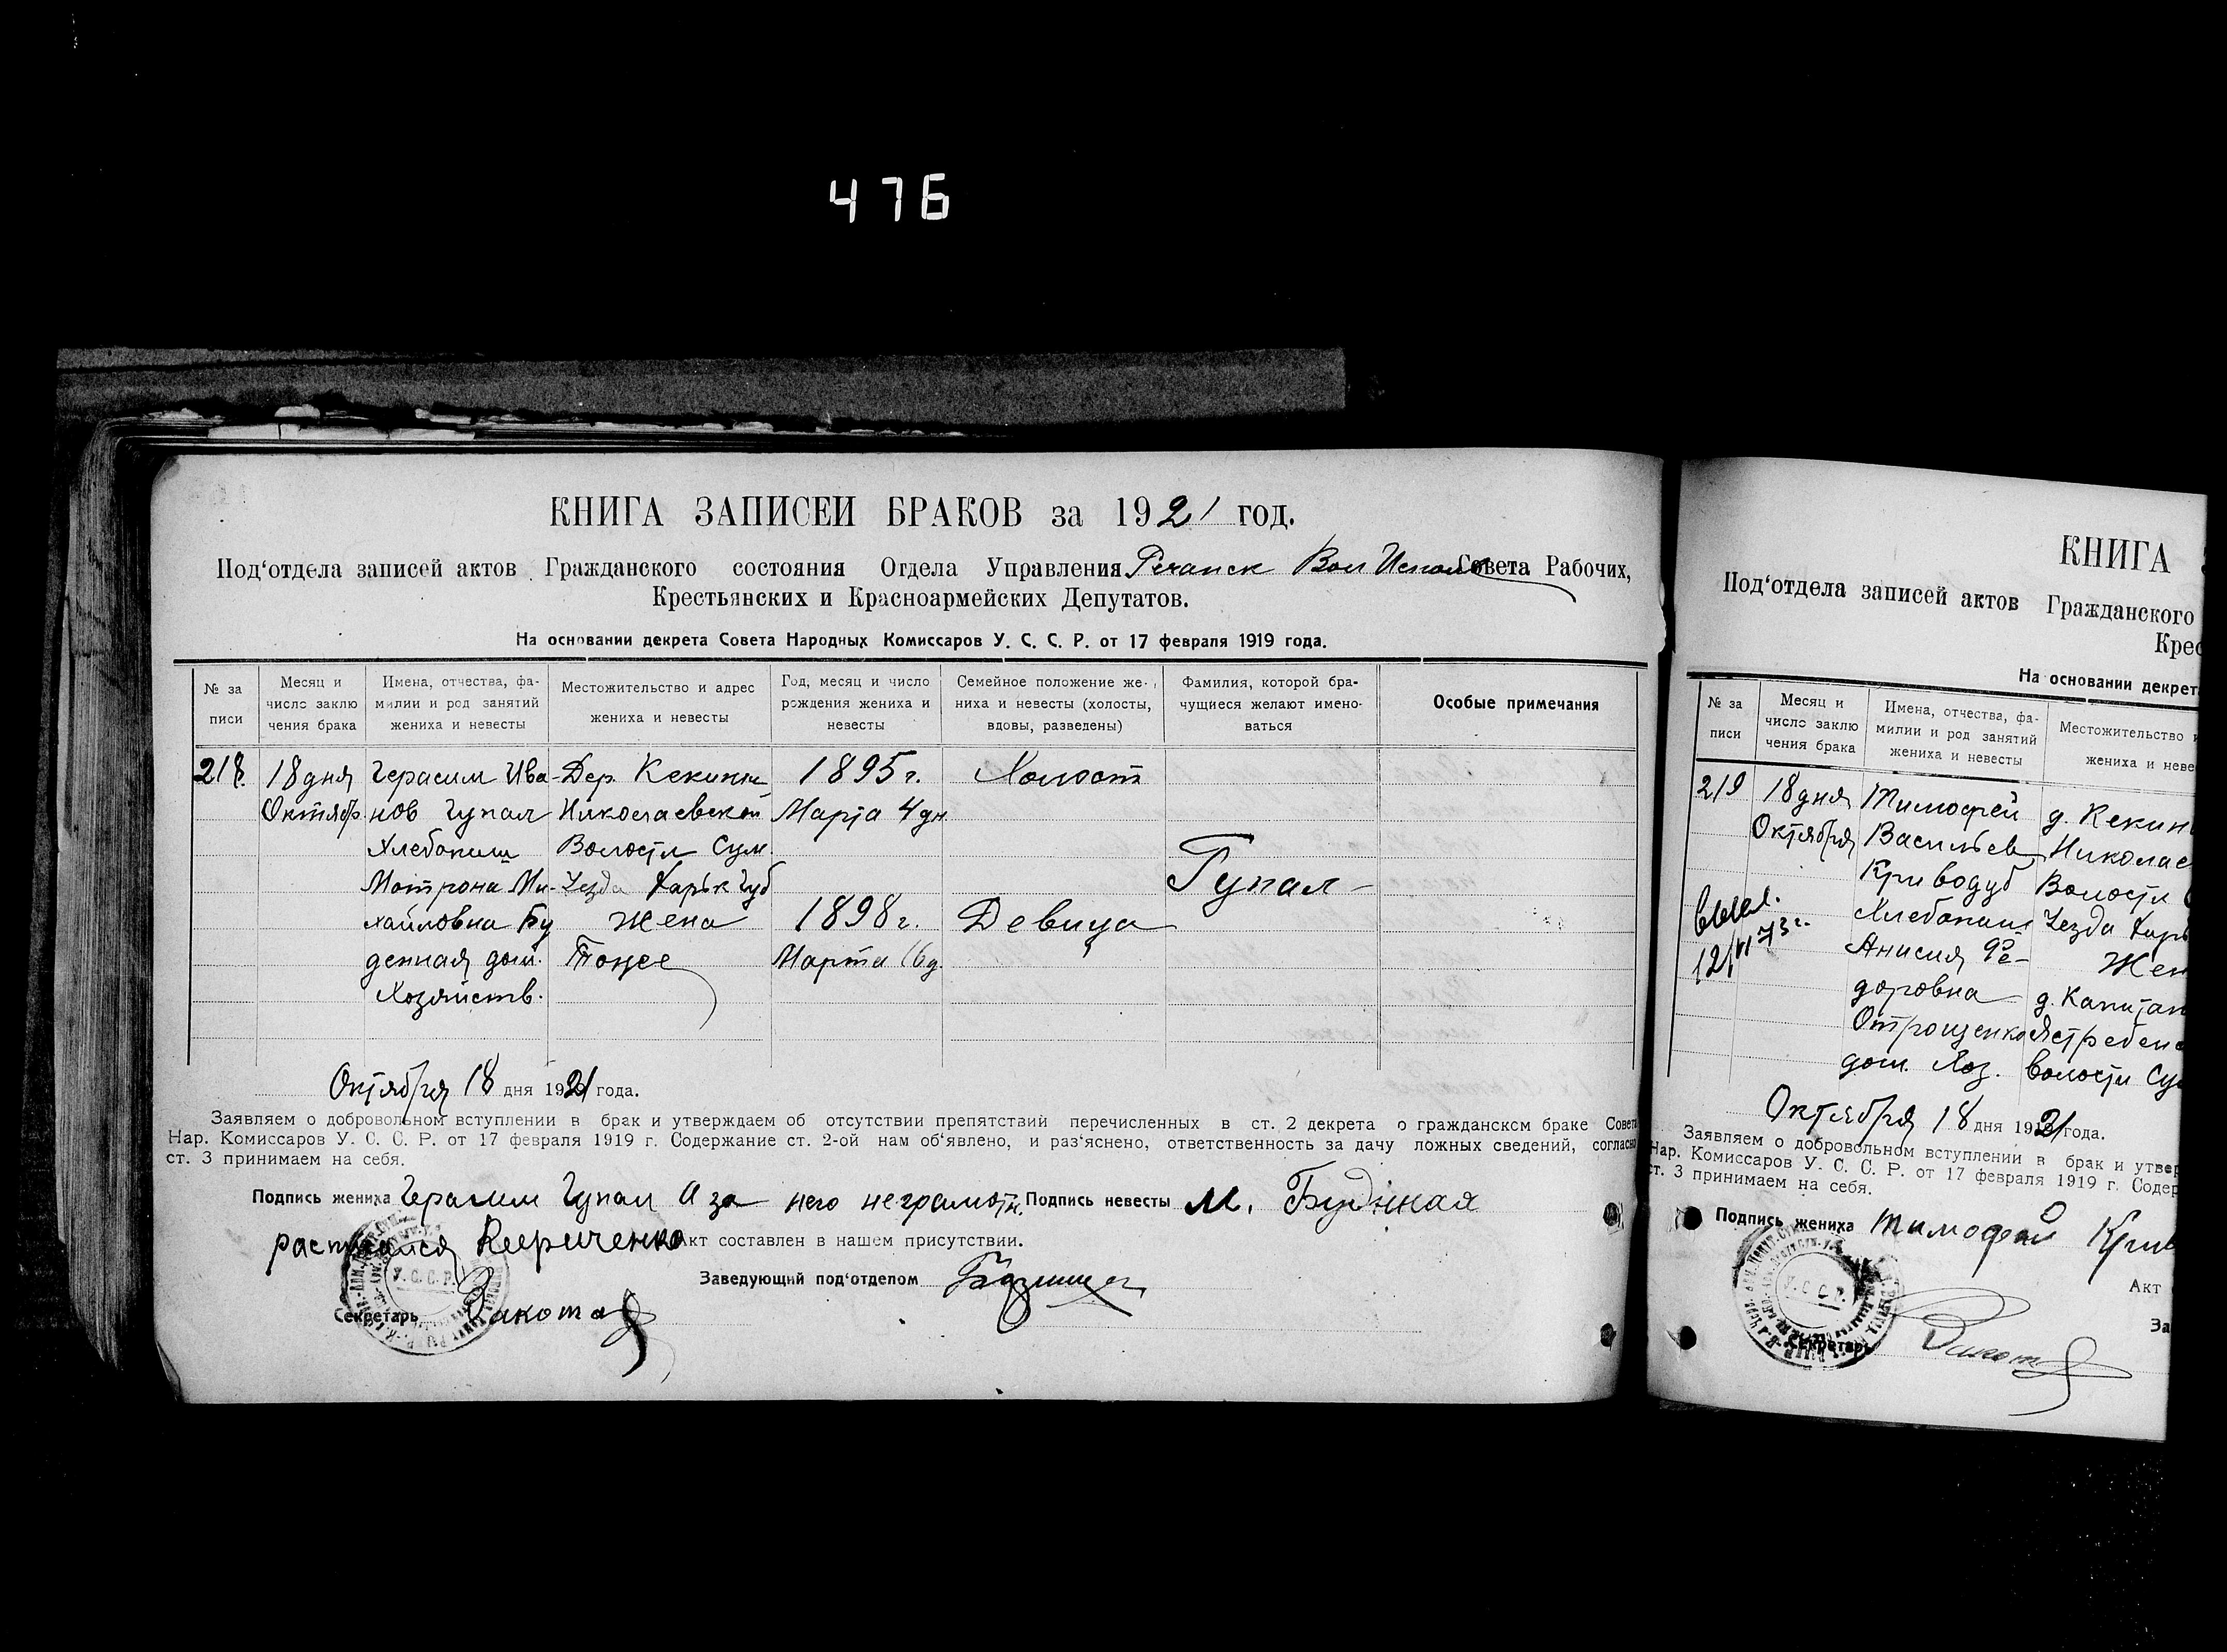 476
КНИГА ЗАПИСЕЙ БРАКОВ за 1921 год.
Под‘отдела записей актов Гражданского состояния Отдела Управления Речанск Вол Исполк Совета Рабочих,
Крестьянских и Красноармейских Депутатов.
На основании декрета Совета Народных Комиссаров У. С. С. Р. от 17 февраля 1919 года.
№ за писи
Месяц и число заклю чения брака
Имена, отчества, фа- милии и род занятий жениха и невесты
Местожительство и адрес жениха и невесты
Год, месяц и число рождения жениха и невесты
Семейное положение же- ниха и невесты (холосты, вдовы, разведены)
Фамилия, которой бра- чущиеся желают имено- ваться
Особые примечания
218. 18 дня Герасим Ива- Дер. Кекины 1895 г. Холост
Октябр. нов Гупал Николаевской Марта 4 дн
Хлебопаш Волости Сум.
Мотрона Ми- Уезда Харьк Губ Гупал
хайловна Бу Жена 1898 г. Девица
денная дом. Тоже Марта 16 д.
Хозяйств.
Октября 18 дня 1921 года.
Заявляем о добровольном вступлении в брак и утверждаем об отсутствии препятствий перечисленных в ст. 2 декрета о гражданскcм браке Совета
Нар. Комиссаров У. С. С. Р. от 17 февраля 1919 г. Содержание ст. 2-ой нам об‘явлено, и раз‘яснено, ответственность за дачу ложных сведений, согласно
ст. 3 принимаем на себя.
Подпись жениха Герасим Гупал А за него неграмотн. Подпись невесты М. Будзнная
расписался Кириченко Акт составлен в нашем присутствии.
Заведующий под‘отделом
Секретарь Ракота
У. С. С. Р.
КНИГА
Под‘отдела записей актов Гражданского
Крес
На основании декрет
№ за писи
Месяц и число заклю чения брака
Имена, отчества, фа- милии и род занятий жениха и невесты
Местожительство и
жениха и неве
219 18 дня Тимофей д. Кекин
Октября Васильев Николае
Криводуб Волости
выд. Хлебопаш Уезда Харь
12/VI 73 г. Анисия Фе- Жен
доровна д. Капитан
Отрощенко Ястребен
дом. Хоз. волости Су
Октября 18 дня 1921 года.
Заявляем о добровольном вступлении в брак и утвер
Нар. Комиссаров У. С. С. Р. от 17 февраля 1919 г. Содер
ст. 3 принимаем на себя.
Подпись жениха Тимофей Крив
Акт
За
У. С. С. Р.
Секретарь Ракота